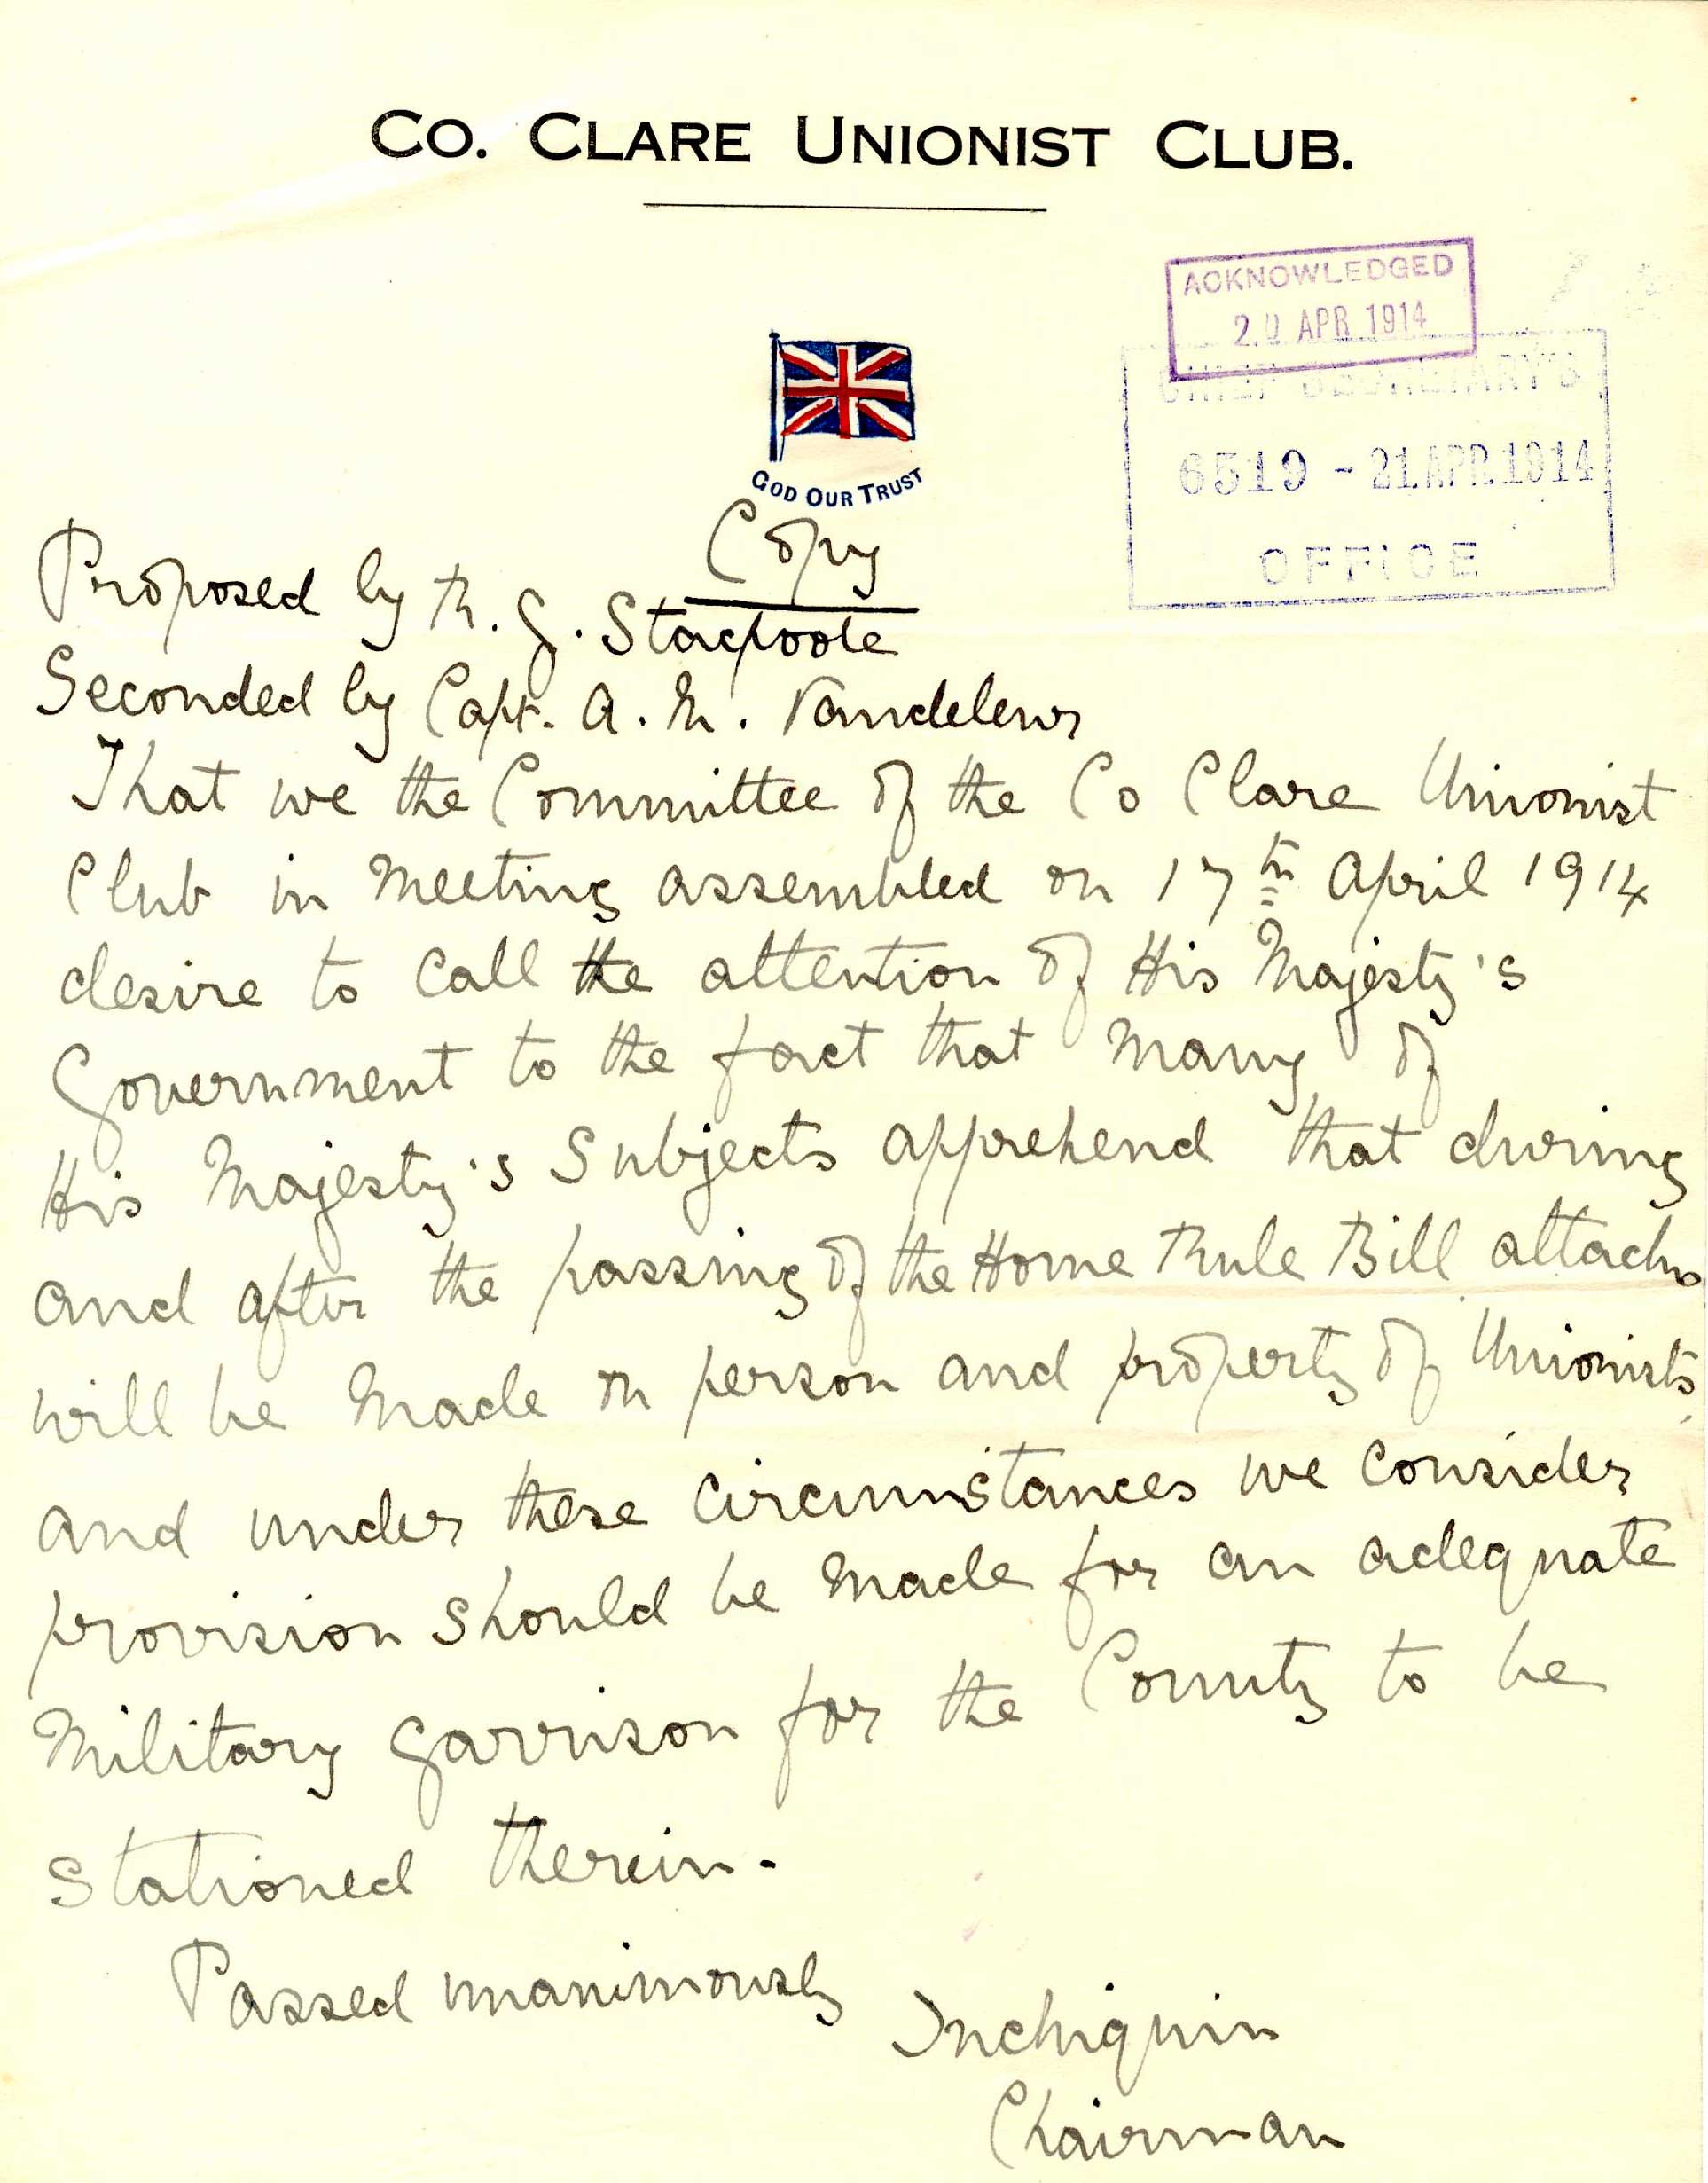 CO. CLARE UNIONIST CLUB.
ACKNOWLEDGED
20 APR 1914
CHIEF SECRETARY'S
6519 - 21 APR. 1914
OFFICE
GOD OUR TRUST
Copy
Proposed by R. G. Stacpoole
Seconded by Capt. A. M. Vandeleur
That we the Committee of the Co Clare Unionist
Club in Meeting assembled on 17th April 1914
desire to call the attention of His Majesty's
Government to the fact that many of
His Majesty's Subjects apprehend that during
and after the passing of the Home Rule Bill attacks
will be made on person and property of Unionists,
and under these circumstances we consider
provision should be made for an adequate
Military garrison for the County to be
stationed therein.
Passed unanimously
Inchiquin
Chairman